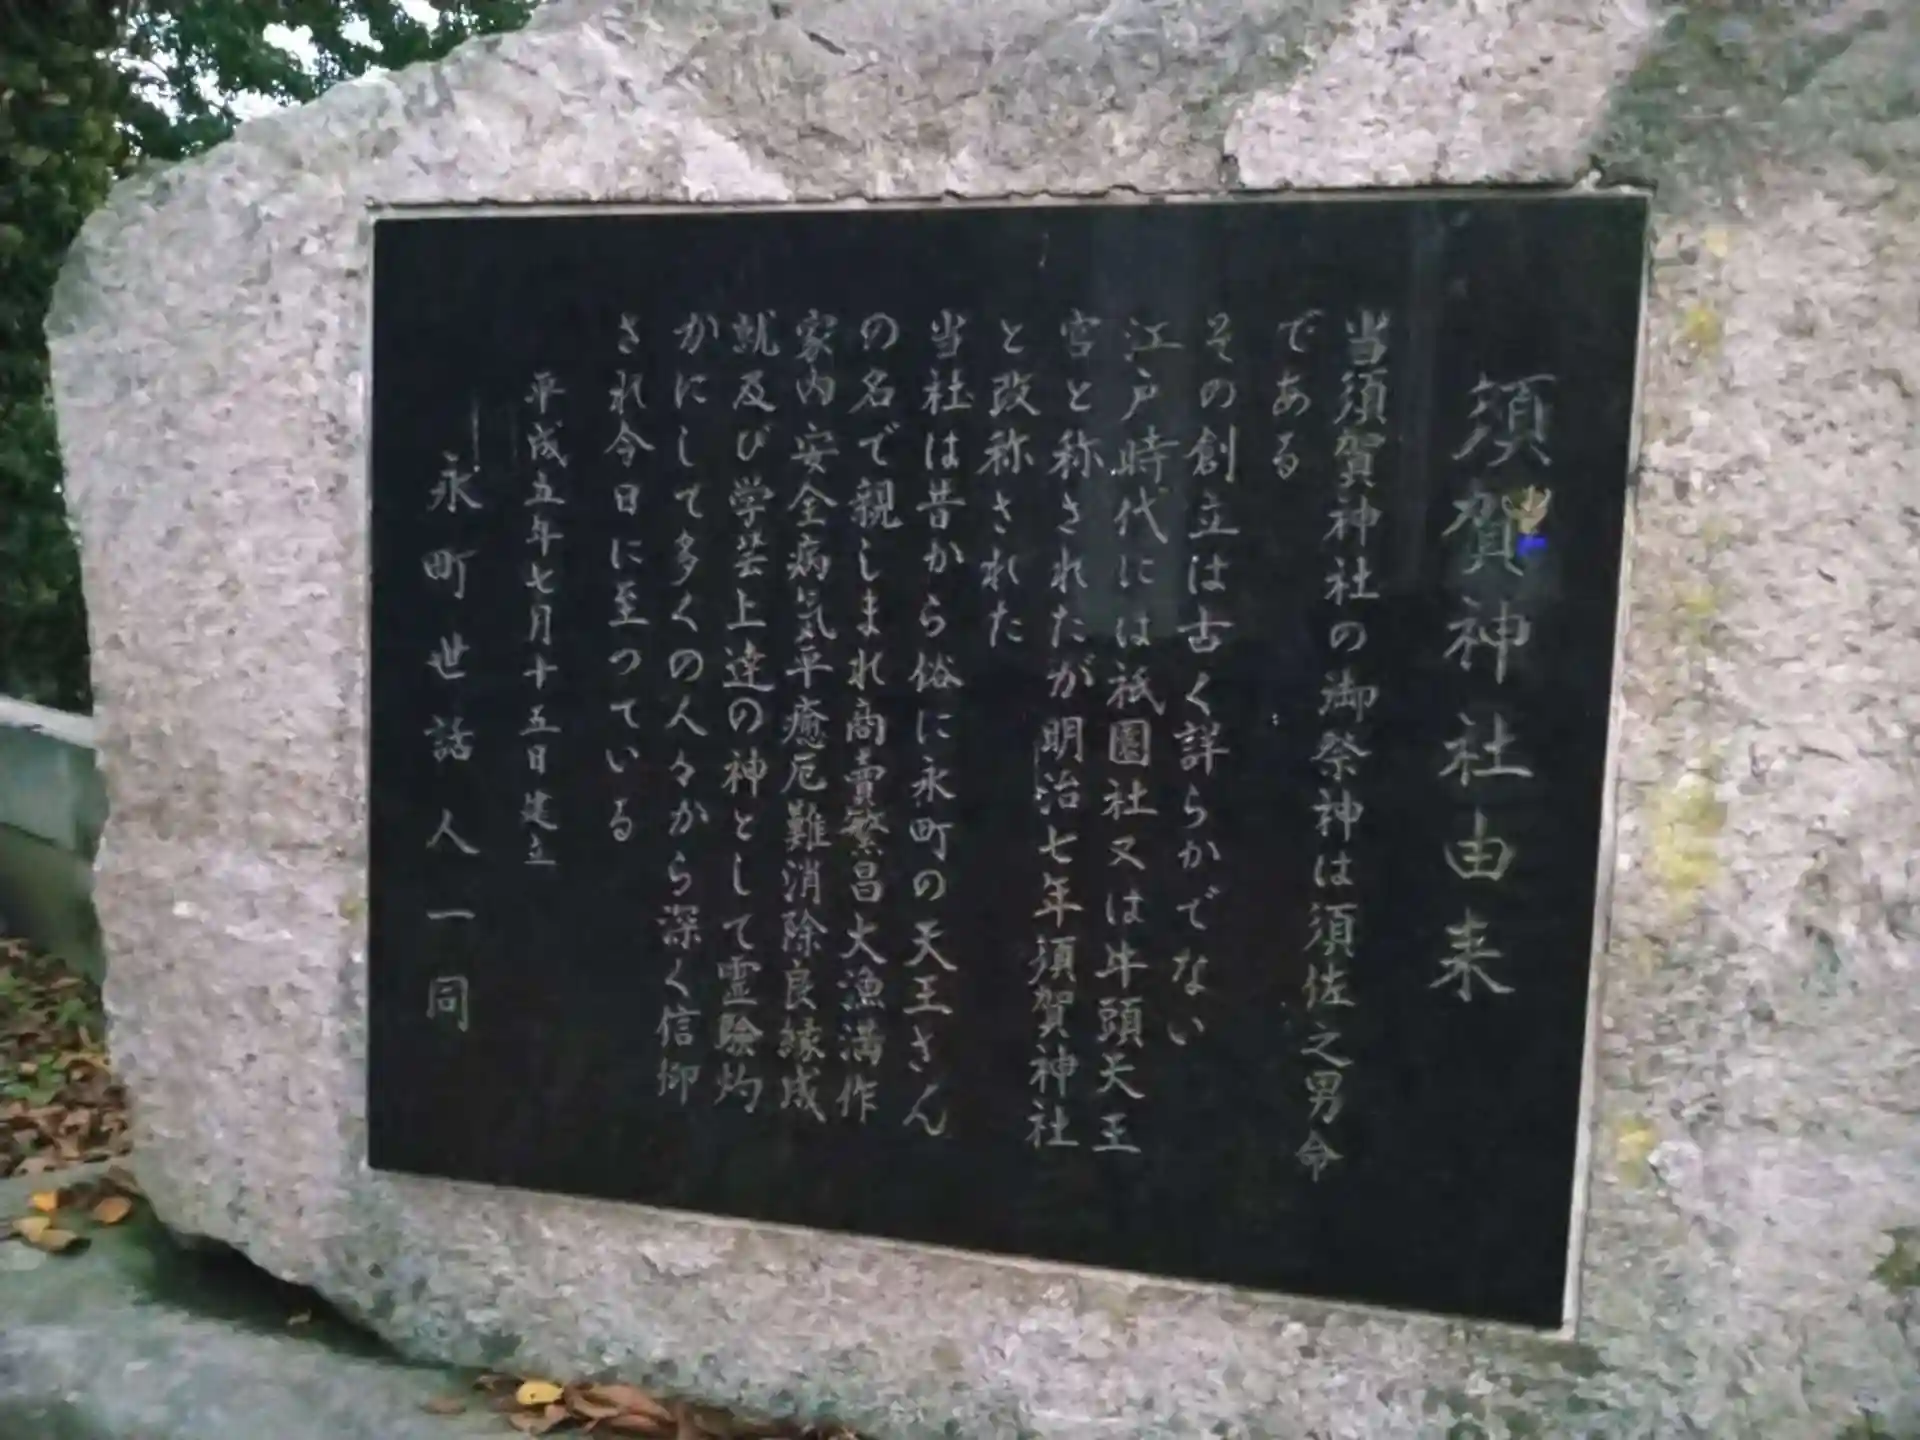 須賀神社由来
当須賀神社の御祭神は須佐之男命
である
その創立は古く詳らかでない
江戸時代には祇園社又は牛頭天王
宮と称されたが明治七年須賀神社
と改称された
当社は昔から俗に永町の天王さん
の名で親しまれ商賣繁昌大漁満作
家内安全病気平癒厄難消除良縁成
就及び学芸上達の神として霊験灼
かにして多くの人々から深く信仰
され今日に至つている
平成五年七月十五日建立
永町世話人一同